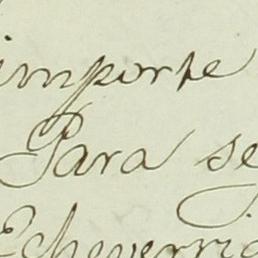 importe
Para se
Echeverria